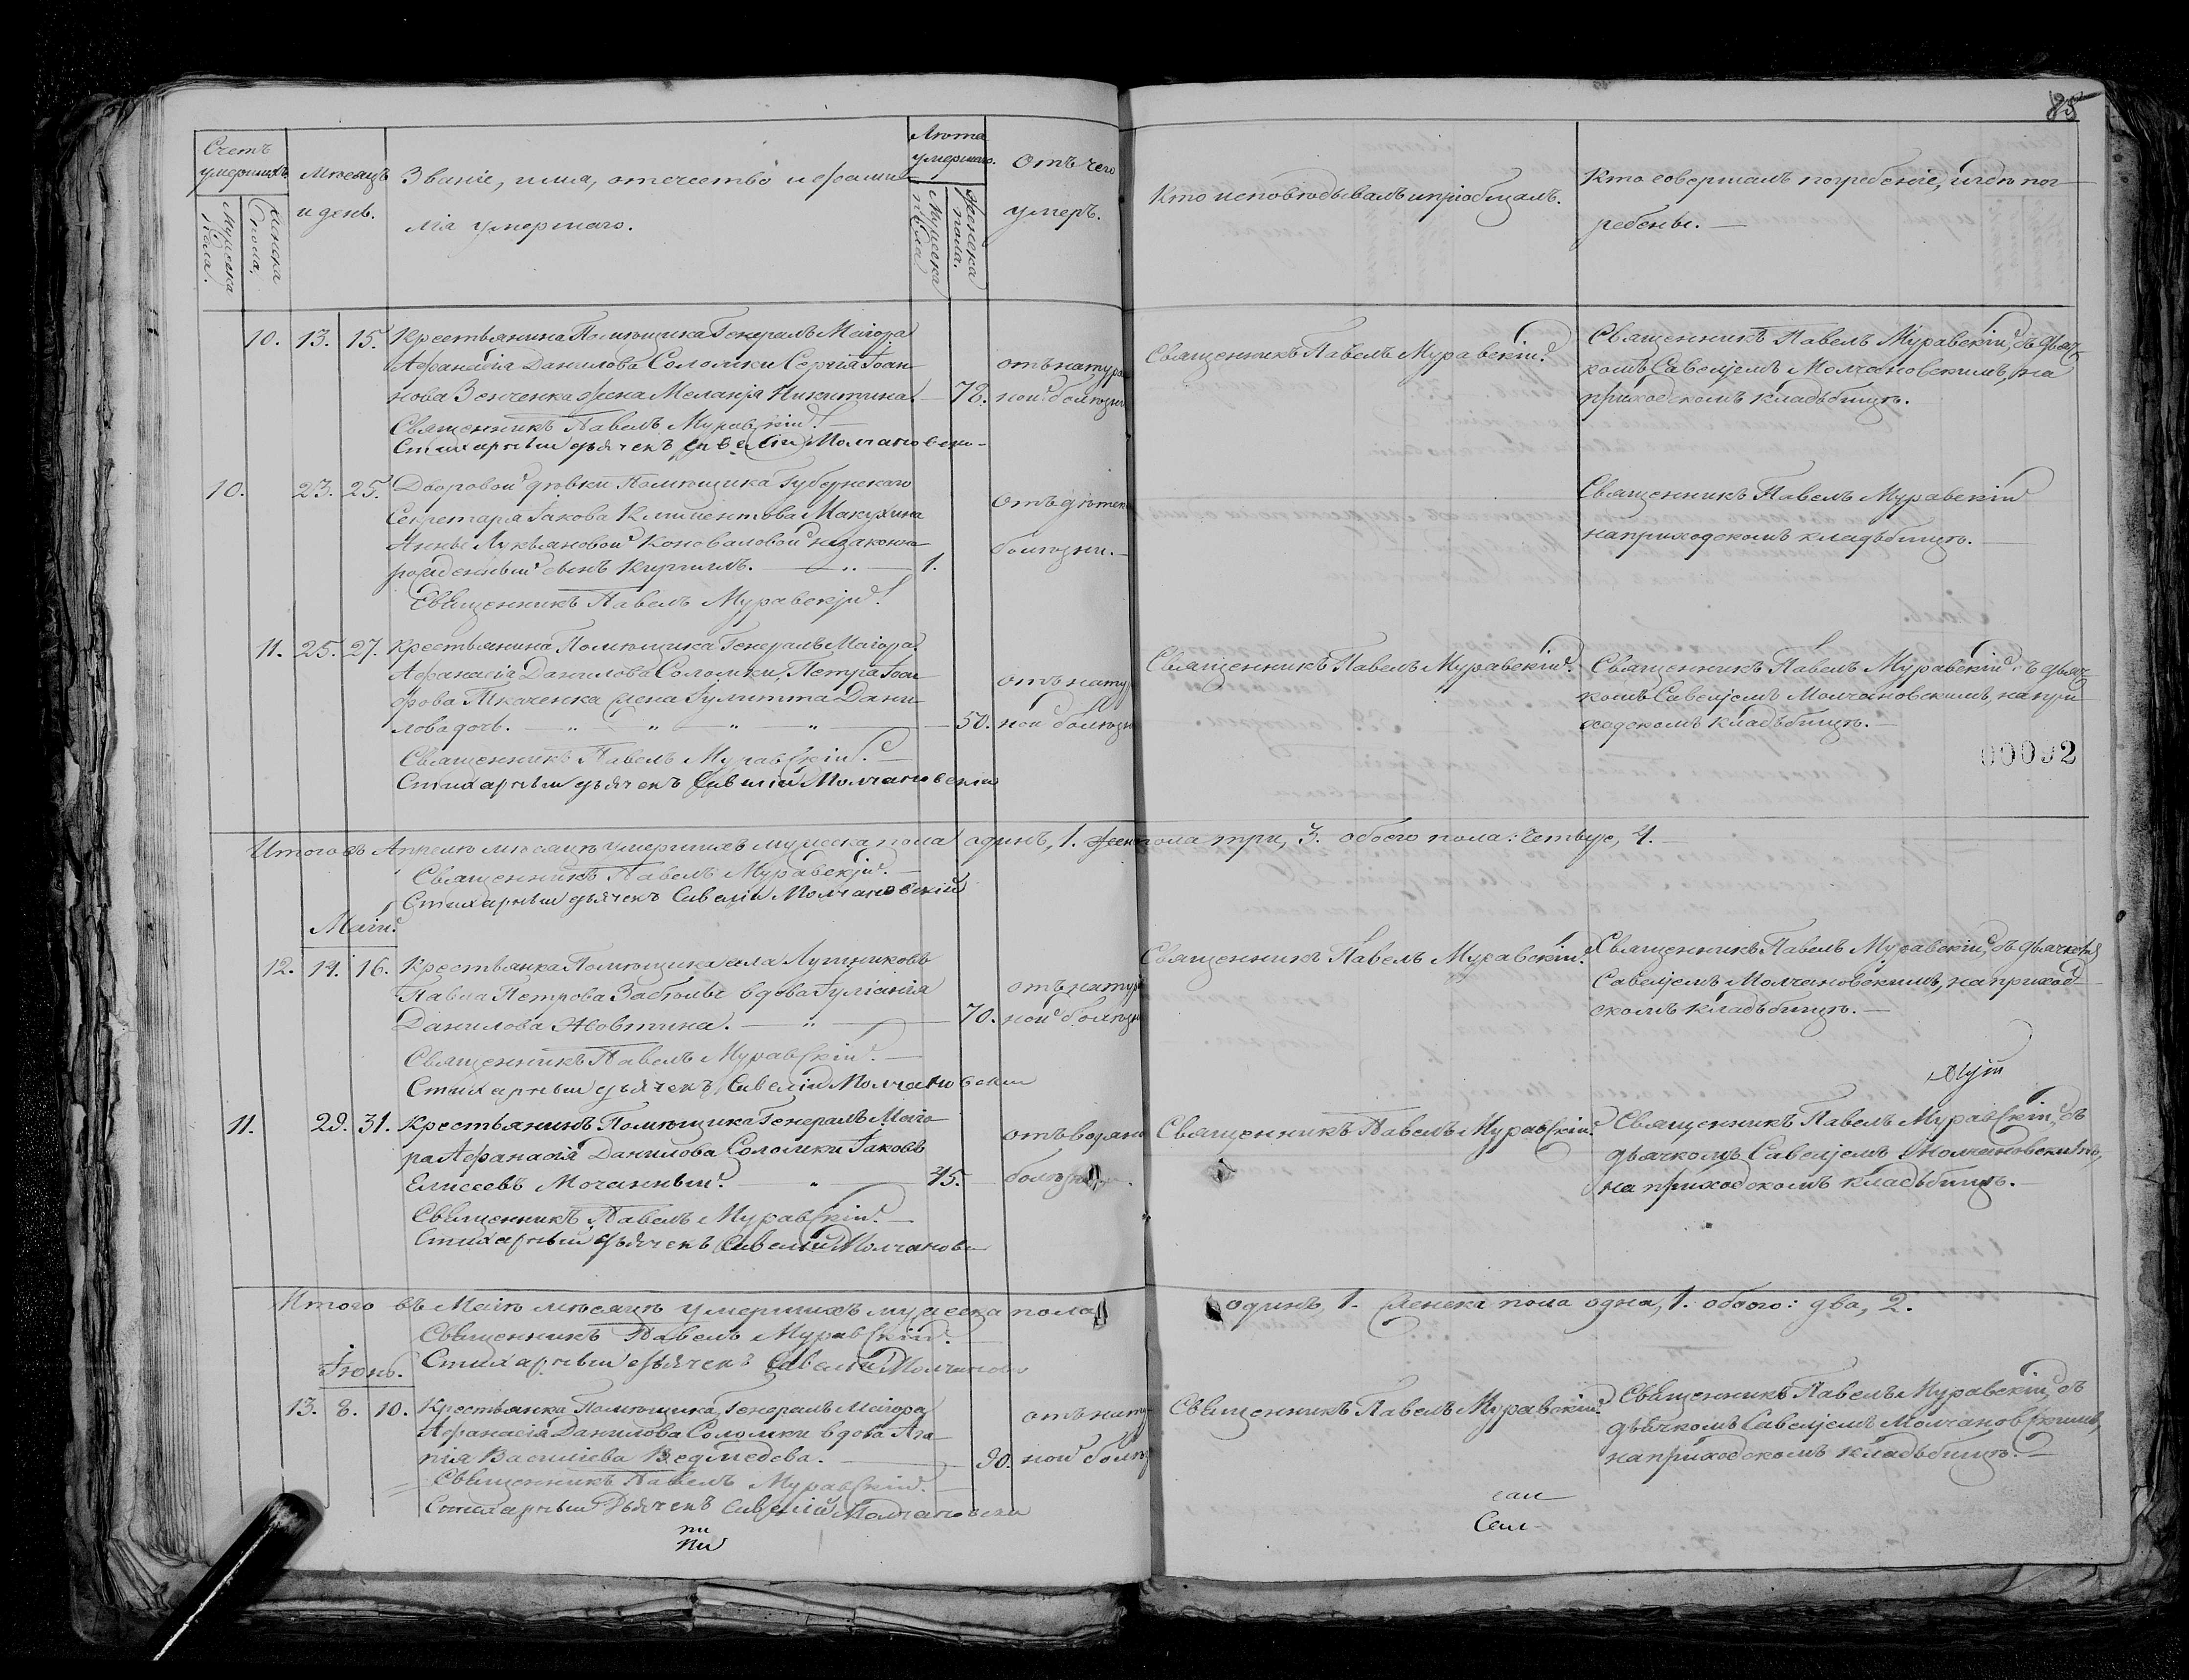 85
Счетъ
умершихъ.
Мужеска
пола.
Женска
пола.
Мѣсяцъ
и день.
Званіе, имя, отечество и фами-
лія умершаго.
Лѣта
умершаго.
Мужеска
пола
Женска
пола.
Отъ чего
умеръ.
Кто исповѣдывалъ и пріобщалъ.
Кто совершалъ погребеніе, и гдѣ пог-
ребены.
10. 13. 15. Крестьянина Помѣщика Генералъ Маіора
Афанасія Данилова Соломки Сергія Іоан-
нова Зенченка жена Меланія Никитина. 78.
отъ натура
ной болѣзни
Священникъ Павелъ Муравскій.
Стихарный дьячекъ Савелій Молчановски-
Священникъ Павелъ Муравскій.
Священникъ Павелъ Муравскій, съ дьяч-
комъ Савеліемъ Молчановскимъ, на
приходскомъ кладьбищѣ.
10. 23. 25. Дворовой дѣвки Помѣщика Губернскаго
Секретаря Іакова Климентова Макухина
Анны Лукьяновой Коноваловой незаконно-
рожденный сынъ Кириллъ. 1.
Отъ дѣтск
болѣзни.
Священникъ Павелъ Муравскій.
Священникъ Павелъ Муравскій
на приходскомъ кладьбищѣ.
11. 25. 27. Крестьянина Помѣщика Генералъ Маіора
Афанасія Данилова Соломки, Петра
Ткаченка жена Іулитта Дани-
лова дочь. 50.
отъ нату
ной болѣзн
Священникъ Павелъ Муравскій.
Стихарный дьячекъ Савелій Молчановскій
Священникъ Павелъ Муравскій.
Священникъ Павелъ Муравскій съ дьяч-
комъ Савеліемъ Молчановскимъ, на при-
ходскомъ кладьбищѣ.
00092
Итого въ Апрелѣ мѣсяцѣ умершихъ мужеска пола одинъ, 1. жен пола три, 3. обоего пола: четыре, 4.
Священникъ Павелъ Муравскій.
Стихарный дьячекъ Савелій Молчановскій
Маій.
12. 14. 16. Крестьянка Помѣщика села Лушниковъ
Павла Петрова Забѣлы вдова Іуліанія
Данилова Жовтина. 70.
отъ нату
ной болѣзн
Священникъ Павелъ Муравскій.
Стихарный дьячекъ Савелій Молчановски
Священникъ Павелъ Муравскій.
Священникъ Павелъ Муравскій, съ дьячкомъ
Савеліемъ Молчановскимъ, на приход-
скомъ кладьбищѣ.
11. 29. 31. Крестьянинъ Помѣщика Генералъ Маіо-
ра Афанасія Данилова Соломки Іаковъ
Елисеевъ Мочанный. 45.
отъ водяно
болѣзни.
Священникъ Павелъ Муравскій.
Стихарный дьячекъ Савелій Молчанов
Священникъ Павелъ Муравскій.
Священникъ Павелъ Муравскій, съ
дьячкомъ Савеліемъ Молчановскимъ,
на приходскомъ кладьбищѣ.
Итого въ Маіѣ мѣсяцѣ умершихъ мужеска пола одинъ, 1. женска пола одна, 1. обоего: два, 2.
Священникъ Павелъ Муравскій.
Стихарный дьячекъ Савелій Молчанов
Іюнь.
13. 8. 10. Крестьянка Помѣщика, Генералъ Маіора
Афанасія Данилова Соломки вдова Ага-
пія Василіева Ведмедева. 90.
отъ нату
ной болѣз
Священникъ Павелъ Муравскій.
Стихарный Дьячекъ Савелій Молчановски
Священникъ Павелъ Муравскій.
Священникъ Павелъ Муравскій, съ
дьячкомъ Савеліемъ Молчановскимъ,
на приходскомъ кладьбищѣ.